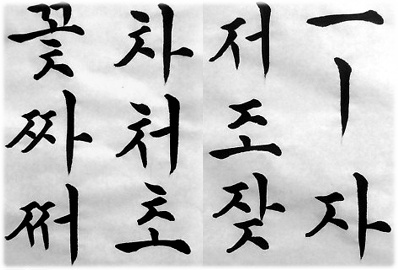 ㅡㅣ자
저조잦
차처초
꽃짜쩌